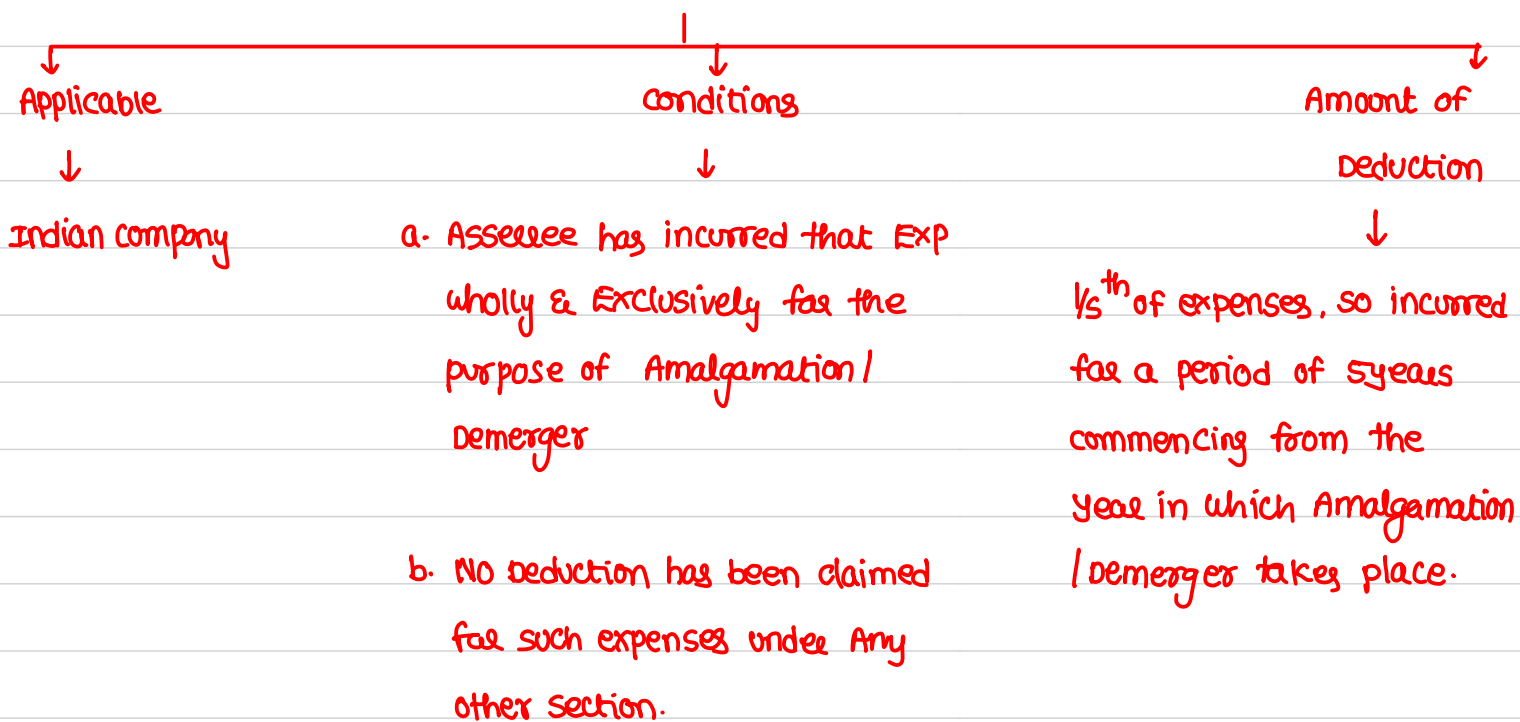 Applicable
Indian company
Conditions
a. Assessee has incurred that Exp
wholly & Exclusively for the
purpose of Amalgamation /
Demerger
b. No Deduction has been claimed
for such expenses under Any
other section.
Amount of
Deduction
1/5th of expenses, so incurred
for a period of 5years
commencing from the
Year in which Amalgamation
/ Demerger takes place.